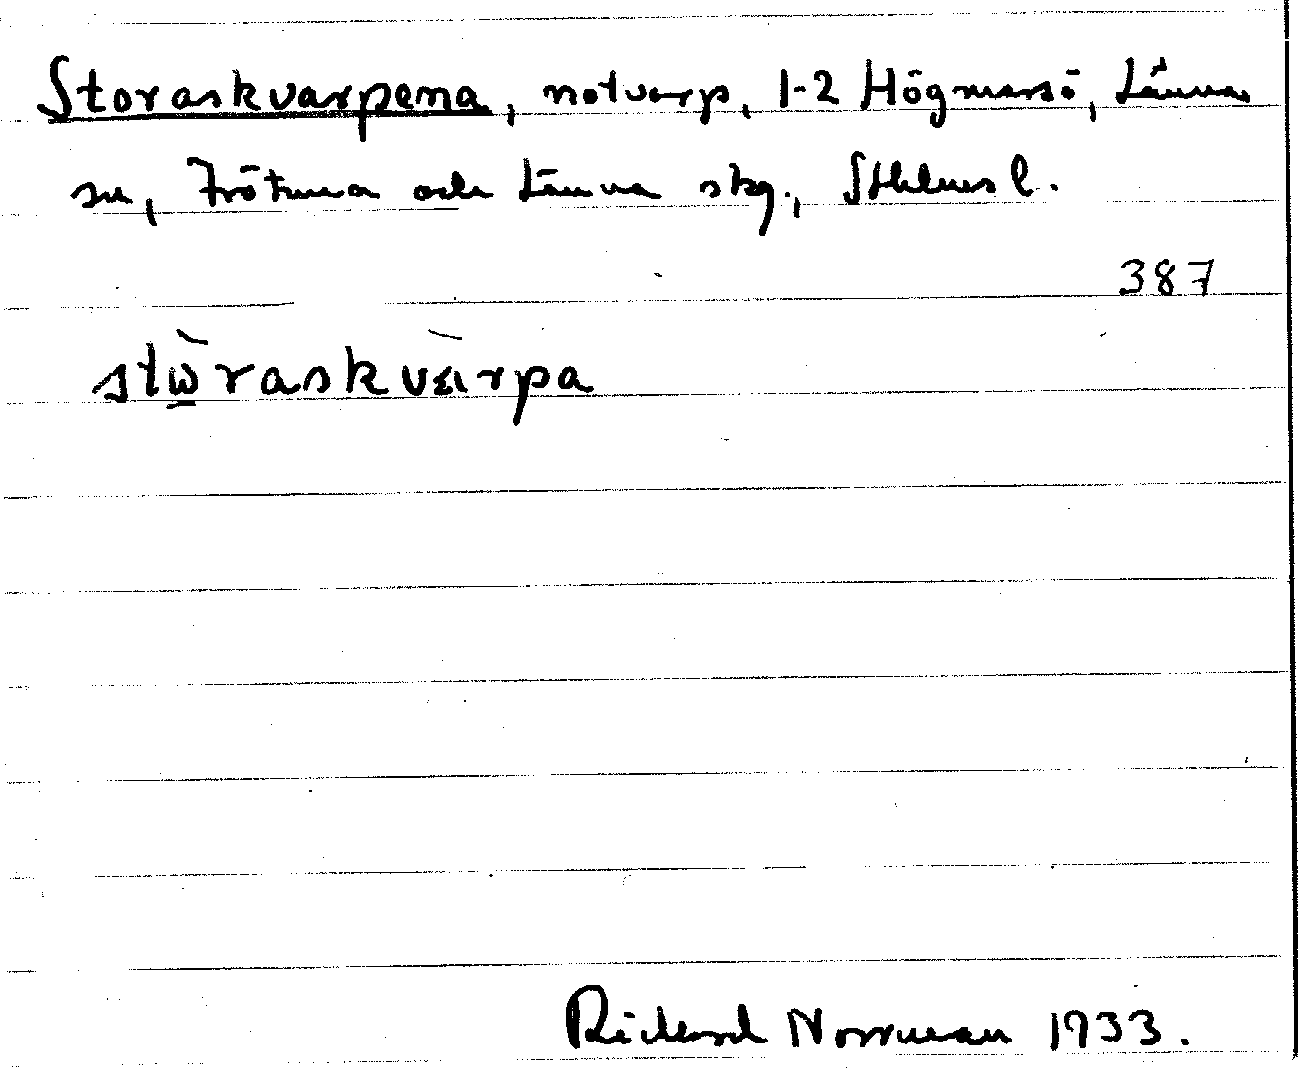 Storaskvarpena, notvarp, 1-2 Högmarsö, Länna
sn, Frötuna och Länna skg., Sthlms l.
387
stὼ̠raskvàrpa
Richard Norrman 1933.